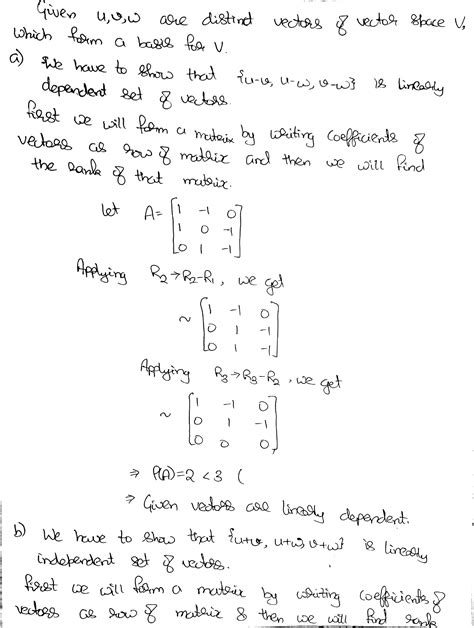 Given u,v,w are distinct vectors of vector space V,
which form a basis for V.
a) We have to show that {u-v, u-w, v-w} is linearly
dependent set of vectors.
First we will form a matrix by writing coefficients of
vectors as row of matrix and then we will find
the rank of that matrix.
let A= [1 -1 0
1 0 -1
0 1 -1]
Applying R2→R2-R1, we get
~ [1 -1 0
0 1 -1
0 1 -1]
Applying R3→R3-R2, we get
~ [1 -1 0
0 1 -1
0 0 0]
⇒ ρ(A)=2 <3 (
⇒ Given vectors are linearly dependent.
b) We have to show that {u+v, u+w, v+w} is linearly
independent set of vectors.
First we will form a matrix by writing coefficients of
vectors as row of matrix & then we will find rank